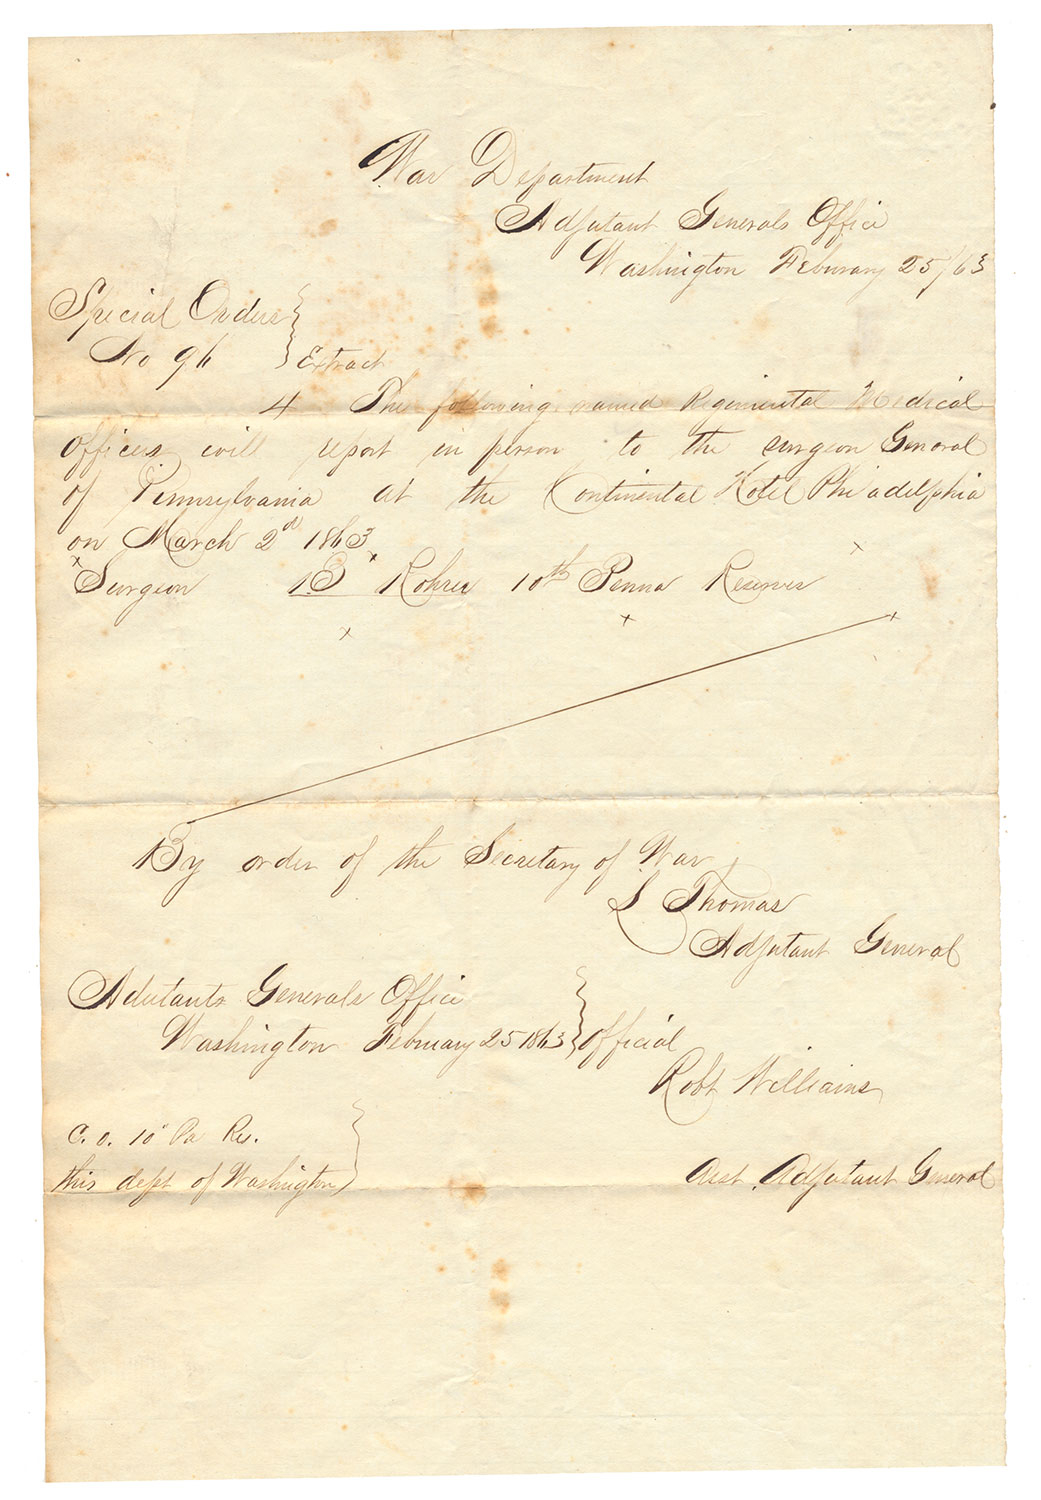 War Department
Adjutant Generals Office
Washington Feburary 25/63
Special Orders
No 96 Extract
4 The following named Regimental Medical
Officers will report in person to the surgeon General
of Pennsylvania at the Continental Hotel Philadelphia
on March 2d 1863
x x x
Surgeon B Rohrer 10th Penna Reserves
x x x
By order of the Secretary of War
L Thomas
Adjutant General
Adutants Generals Office
Washington February 25 1863 Official
Robt Williams
C. O. 10" Pa Res.
this dept of Washington
Asst. Adjutant General